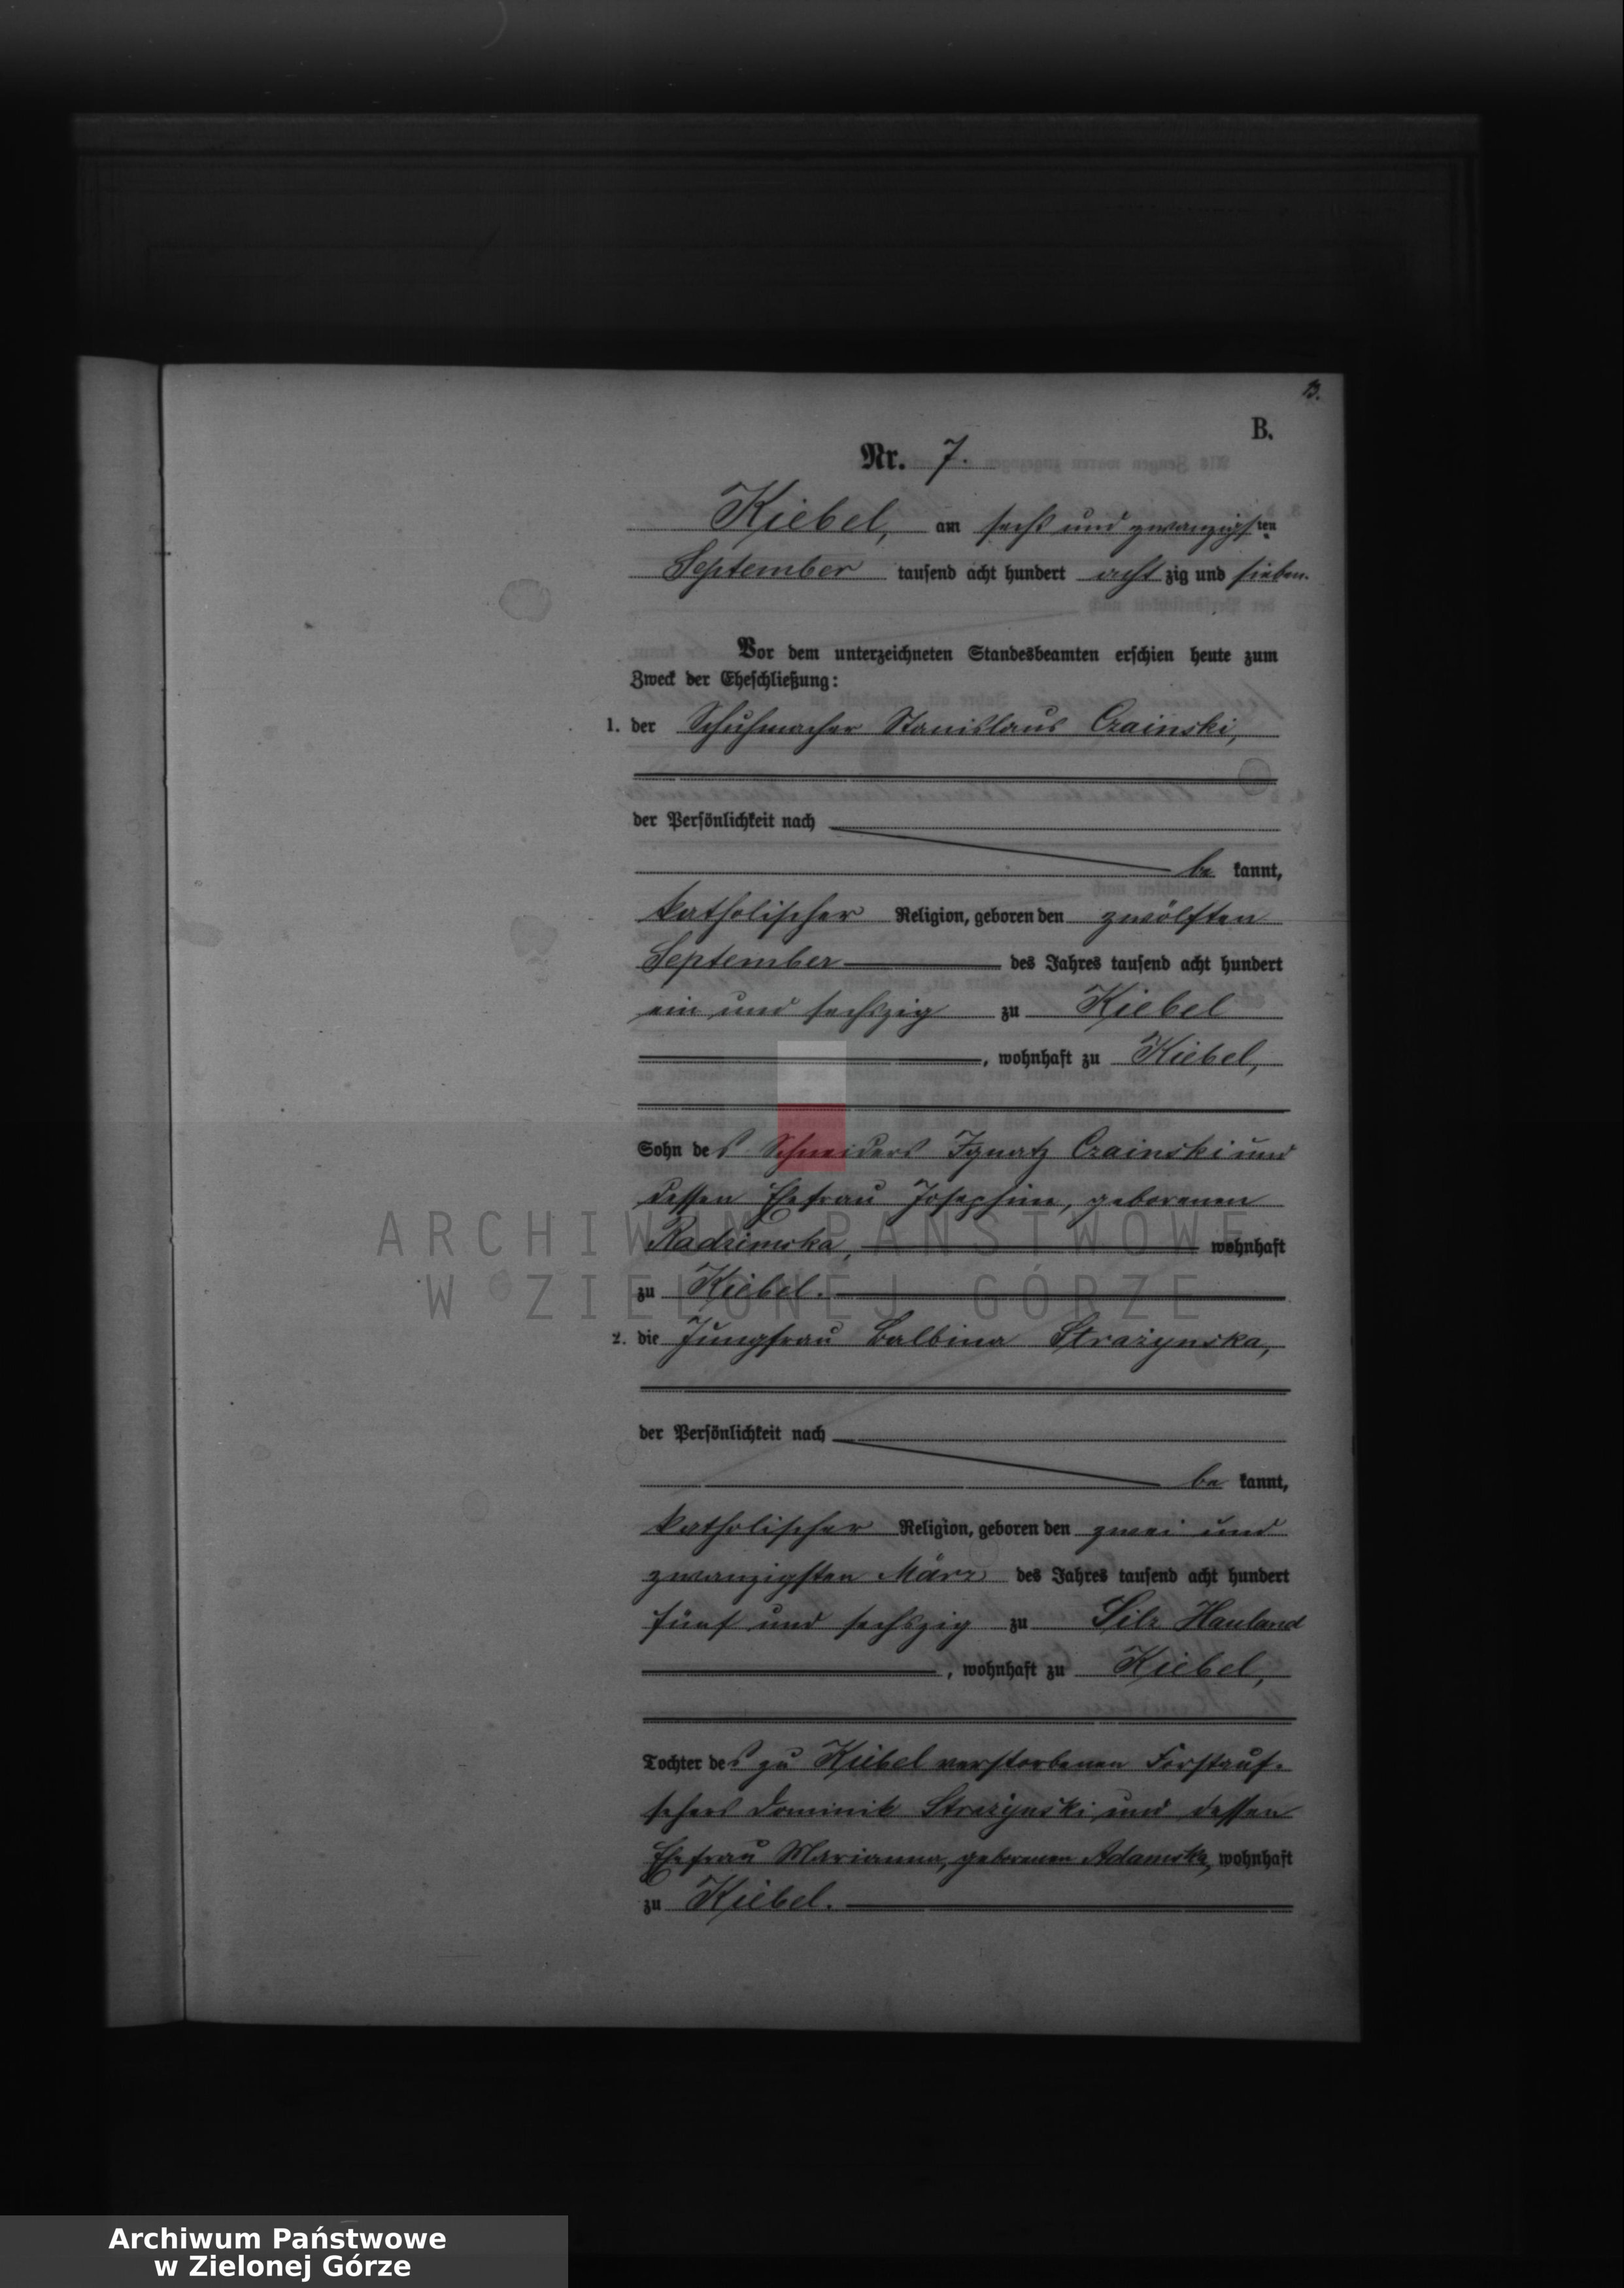 13.
B.
Nr. 7.
Kiebel, am sechs und zwanzigsten
September tausend acht hundert acht zig und sieben.
Vor dem unterzeichneten Standesbeamten erschien heute zum
Zweck der Eheschließung:
1. der Schuhmacher Stanislaus Czainski,
der Persönlichkeit nach
be kannt,
katholischer Religion, geboren den zwölften
September des Jahres tausend acht hundert
ein und sechszig zu Kiebel
, wohnhaft zu Kiebel,
Sohn des Schneiders Ignatz Czainski und
dessen Ehefrau Josephine, geborenen
Radzimska, wohnhaft
zu Kiebel.
2. die Jungfrau Balbina Strażynska,
der Persönlichkeit nach
be kannt,
katholischer Religion, geboren den zwei und
zwanzigsten März des Jahres tausend acht hundert
fünf und sechszig zu Silz Hauland
, wohnhaft zu Kiebel,
Tochter des zu Kiebel verstorbenen Forstauf-
sehers Dominik Strażynski und dessen
Ehefrau Marianna, geborenen Adamska, wohnhaft
zu Kiebel.
ARCHIWUM PAŃSTWOWE
W ZIELONEJ GÓRZE
Archiwum Państwowe
w Zielonej Górze